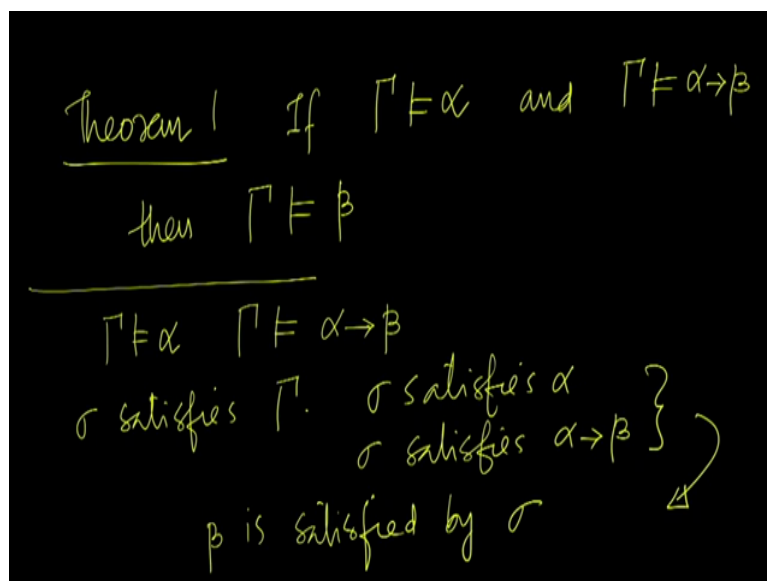 Theorem 1 If Γ ⊨ α and Γ ⊨ α → β
then Γ ⊨ β
Γ ⊨ α Γ ⊨ α → β
σ satisfies Γ. σ satisfies α
σ satisfies α → β
β is satisfied by σ